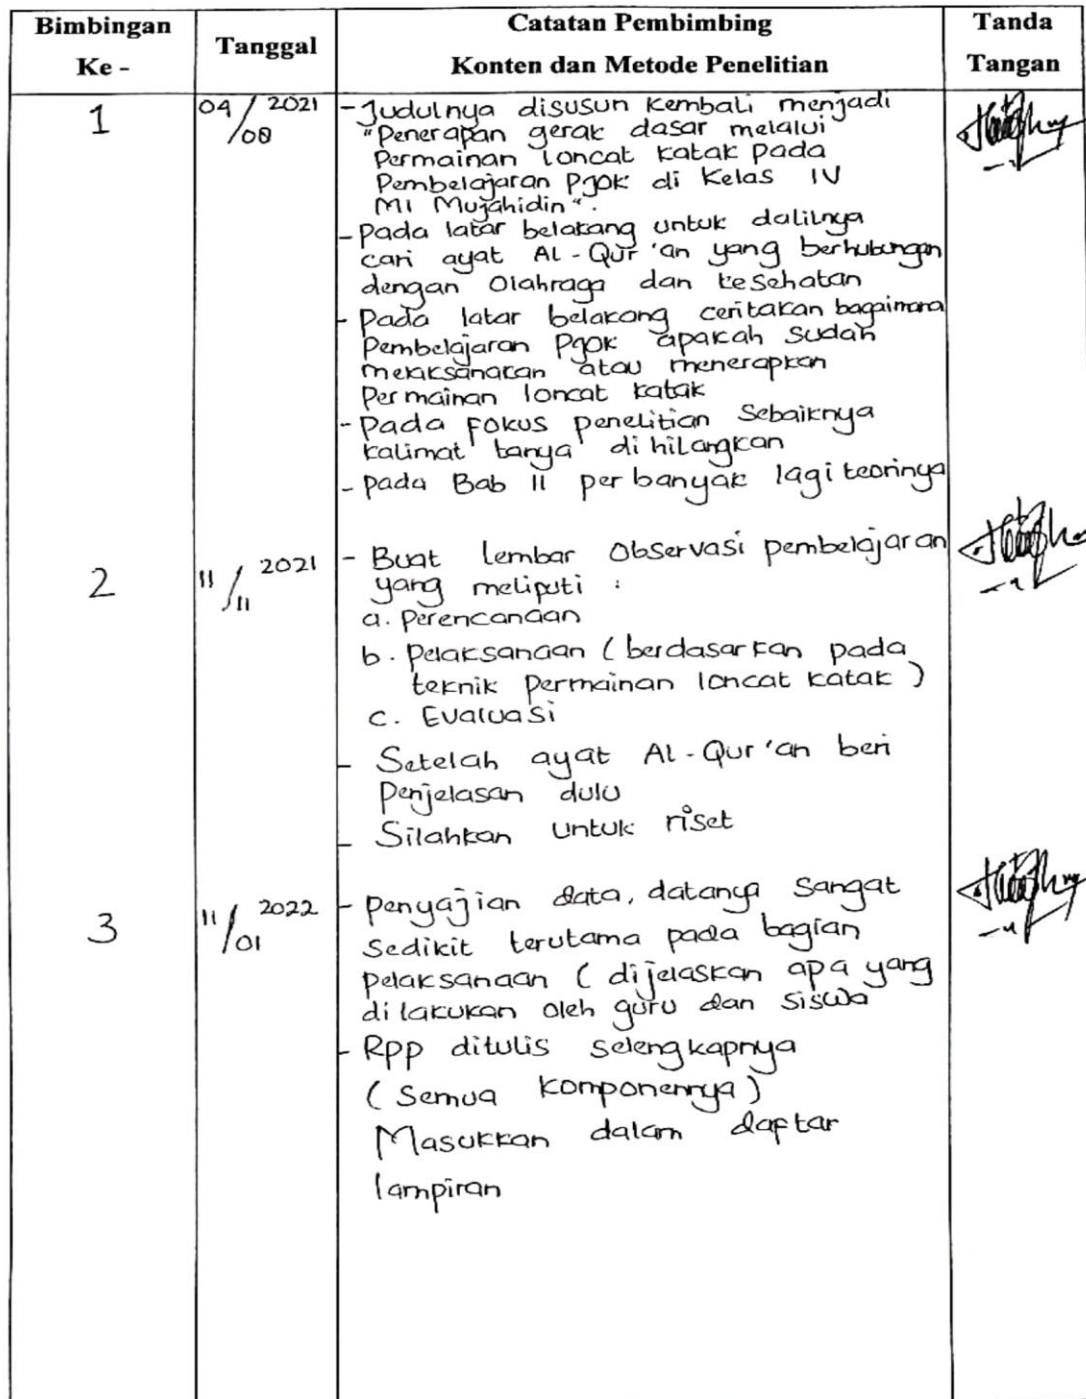 Bimbingan Ke - Tanggal Catatan Pembimbing Konten dan Metode Penelitian Tanda Tangan
1 04/08 2021 - Judulnya disusun kembali menjadi
"Penerapan gerak dasar melalui
Permainan loncat katak pada
Pembelajaran Pjok di Kelas IV
MI Mujahidin".
- Pada latar belakang untuk dalilnya
cari ayat Al-Qur'an yang berhubungan
dengan Olahraga dan kesehatan
- Pada latar belakang ceritakan bagaimana
Pembelajaran Pjok apakah sudah
melaksanakan atau menerapkan
Permainan loncat katak
- Pada Fokus penelitian Sebaiknya
kalimat tanya dihilangkan
- pada Bab II perbanyak lagi teorinya
2 11/11 2021 - Buat lembar Observasi pembelajaran
yang meliputi :
a. Perencanaan
b. Pelaksanaan (berdasarkan pada
teknik permainan loncat katak)
c. Evaluasi
- Setelah ayat Al-Qur'an beri
Penjelasan dulu
- Silahkan untuk riset
3 11/01 2022 - Penyajian data, datanya Sangat
Sedikit terutama pada bagian
pelaksanaan (dijelaskan apa yang
dilakukan oleh guru dan Siswa
- Rpp ditulis selengkapnya
(Semua komponennya)
Masukkan dalam daftar
lampiran